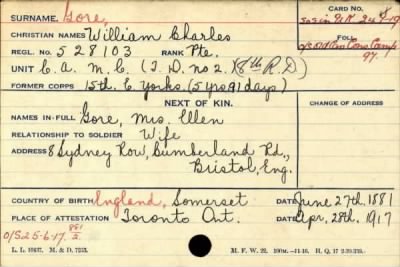 SURNAME. Gore, CARD NO.
CHRISTIAN NAMES William Charles
REGL. No. 528103 RANK Pte. FOLL.
UNIT C. A. M. C. (T. D. no 2.) (8th R.D)
FORMER CORPS 15th. E. Yorks. (5 yrs 91 days)
NEXT OF KIN. CHANGE OF ADDRESS
NAMES IN FULL Gore, Mrs. Ellen
RELATIONSHIP TO SOLDIER Wife
ADDRESS 8 Sydney Row, Cumberland Rd.,
Bristol, Eng.
COUNTRY OF BIRTH England, Somerset DATE June 27th. 1881
PLACE OF ATTESTATION Toronto Ont. DATE Apr. 28th. 1917
O/S 25-6-17
M. F. W. 22.